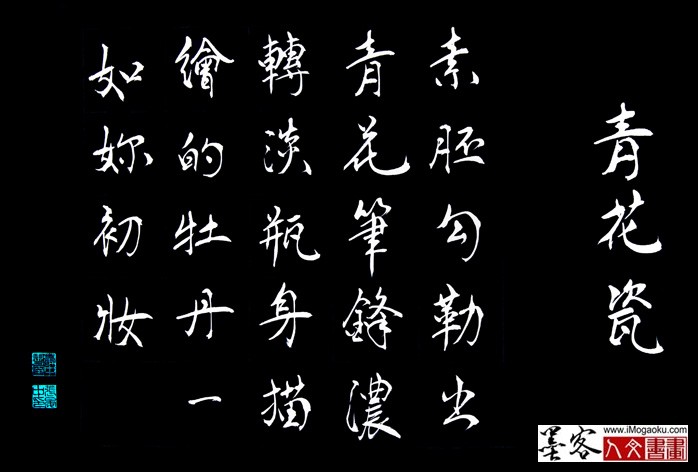 青花瓷
素胚勾勒出
青花筆鋒濃
轉淡瓶身描
繪的牡丹一
如妳初妝
墨客
www.iMogaoku.com
人文書畫